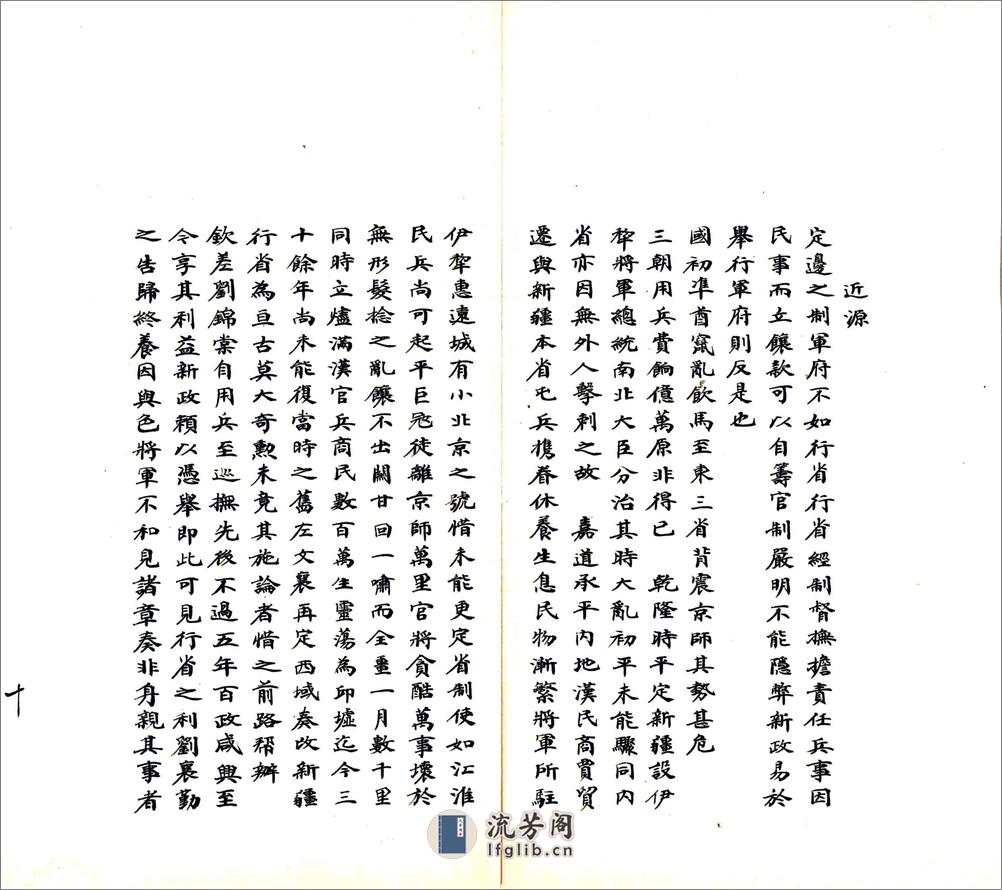 近源
定邊之制軍府不如行省行省經制督撫擔責任兵事因
民事而立饟款可以自籌官制嚴明不能隱弊新政易於
舉行軍府則反是也
國初準酋竄亂飲馬至東三省背震京師其勢甚危
三朝用兵費餉億萬原非得已 乾隆時平定新疆設伊
犂將軍總統南北大臣分治其時大亂初平未能驟同内
省亦因無外人擊刺之故 嘉道承平内地漢民商賈貿
遷與新疆本省屯兵携眷休養生息民物漸繁將軍所駐
伊犂惠遠城有小北京之號惜未能更定省制使如江淮
民兵尚可起平巨冦徒離京師萬里官將貪酷萬事壞於
無形髮捻之亂饟不出關甘回一嘯而全畺一月數千里
同時立燼滿漢官兵商民數百萬生靈蕩為邱墟迄今三
十餘年尚未能復當時之舊左文襄再定西域奏改新疆
行省為亘古莫大奇勲未竟其施論者惜之前路帮辦
欽差劉錦棠自用兵至巡撫先後不過五年百政咸興至
今享其利益新政頼以憑舉即此可見行省之利劉襄勤
之告歸終養因與色將軍不和見諸章奏非身親其事者
十
流芳阁
lfglib.cn